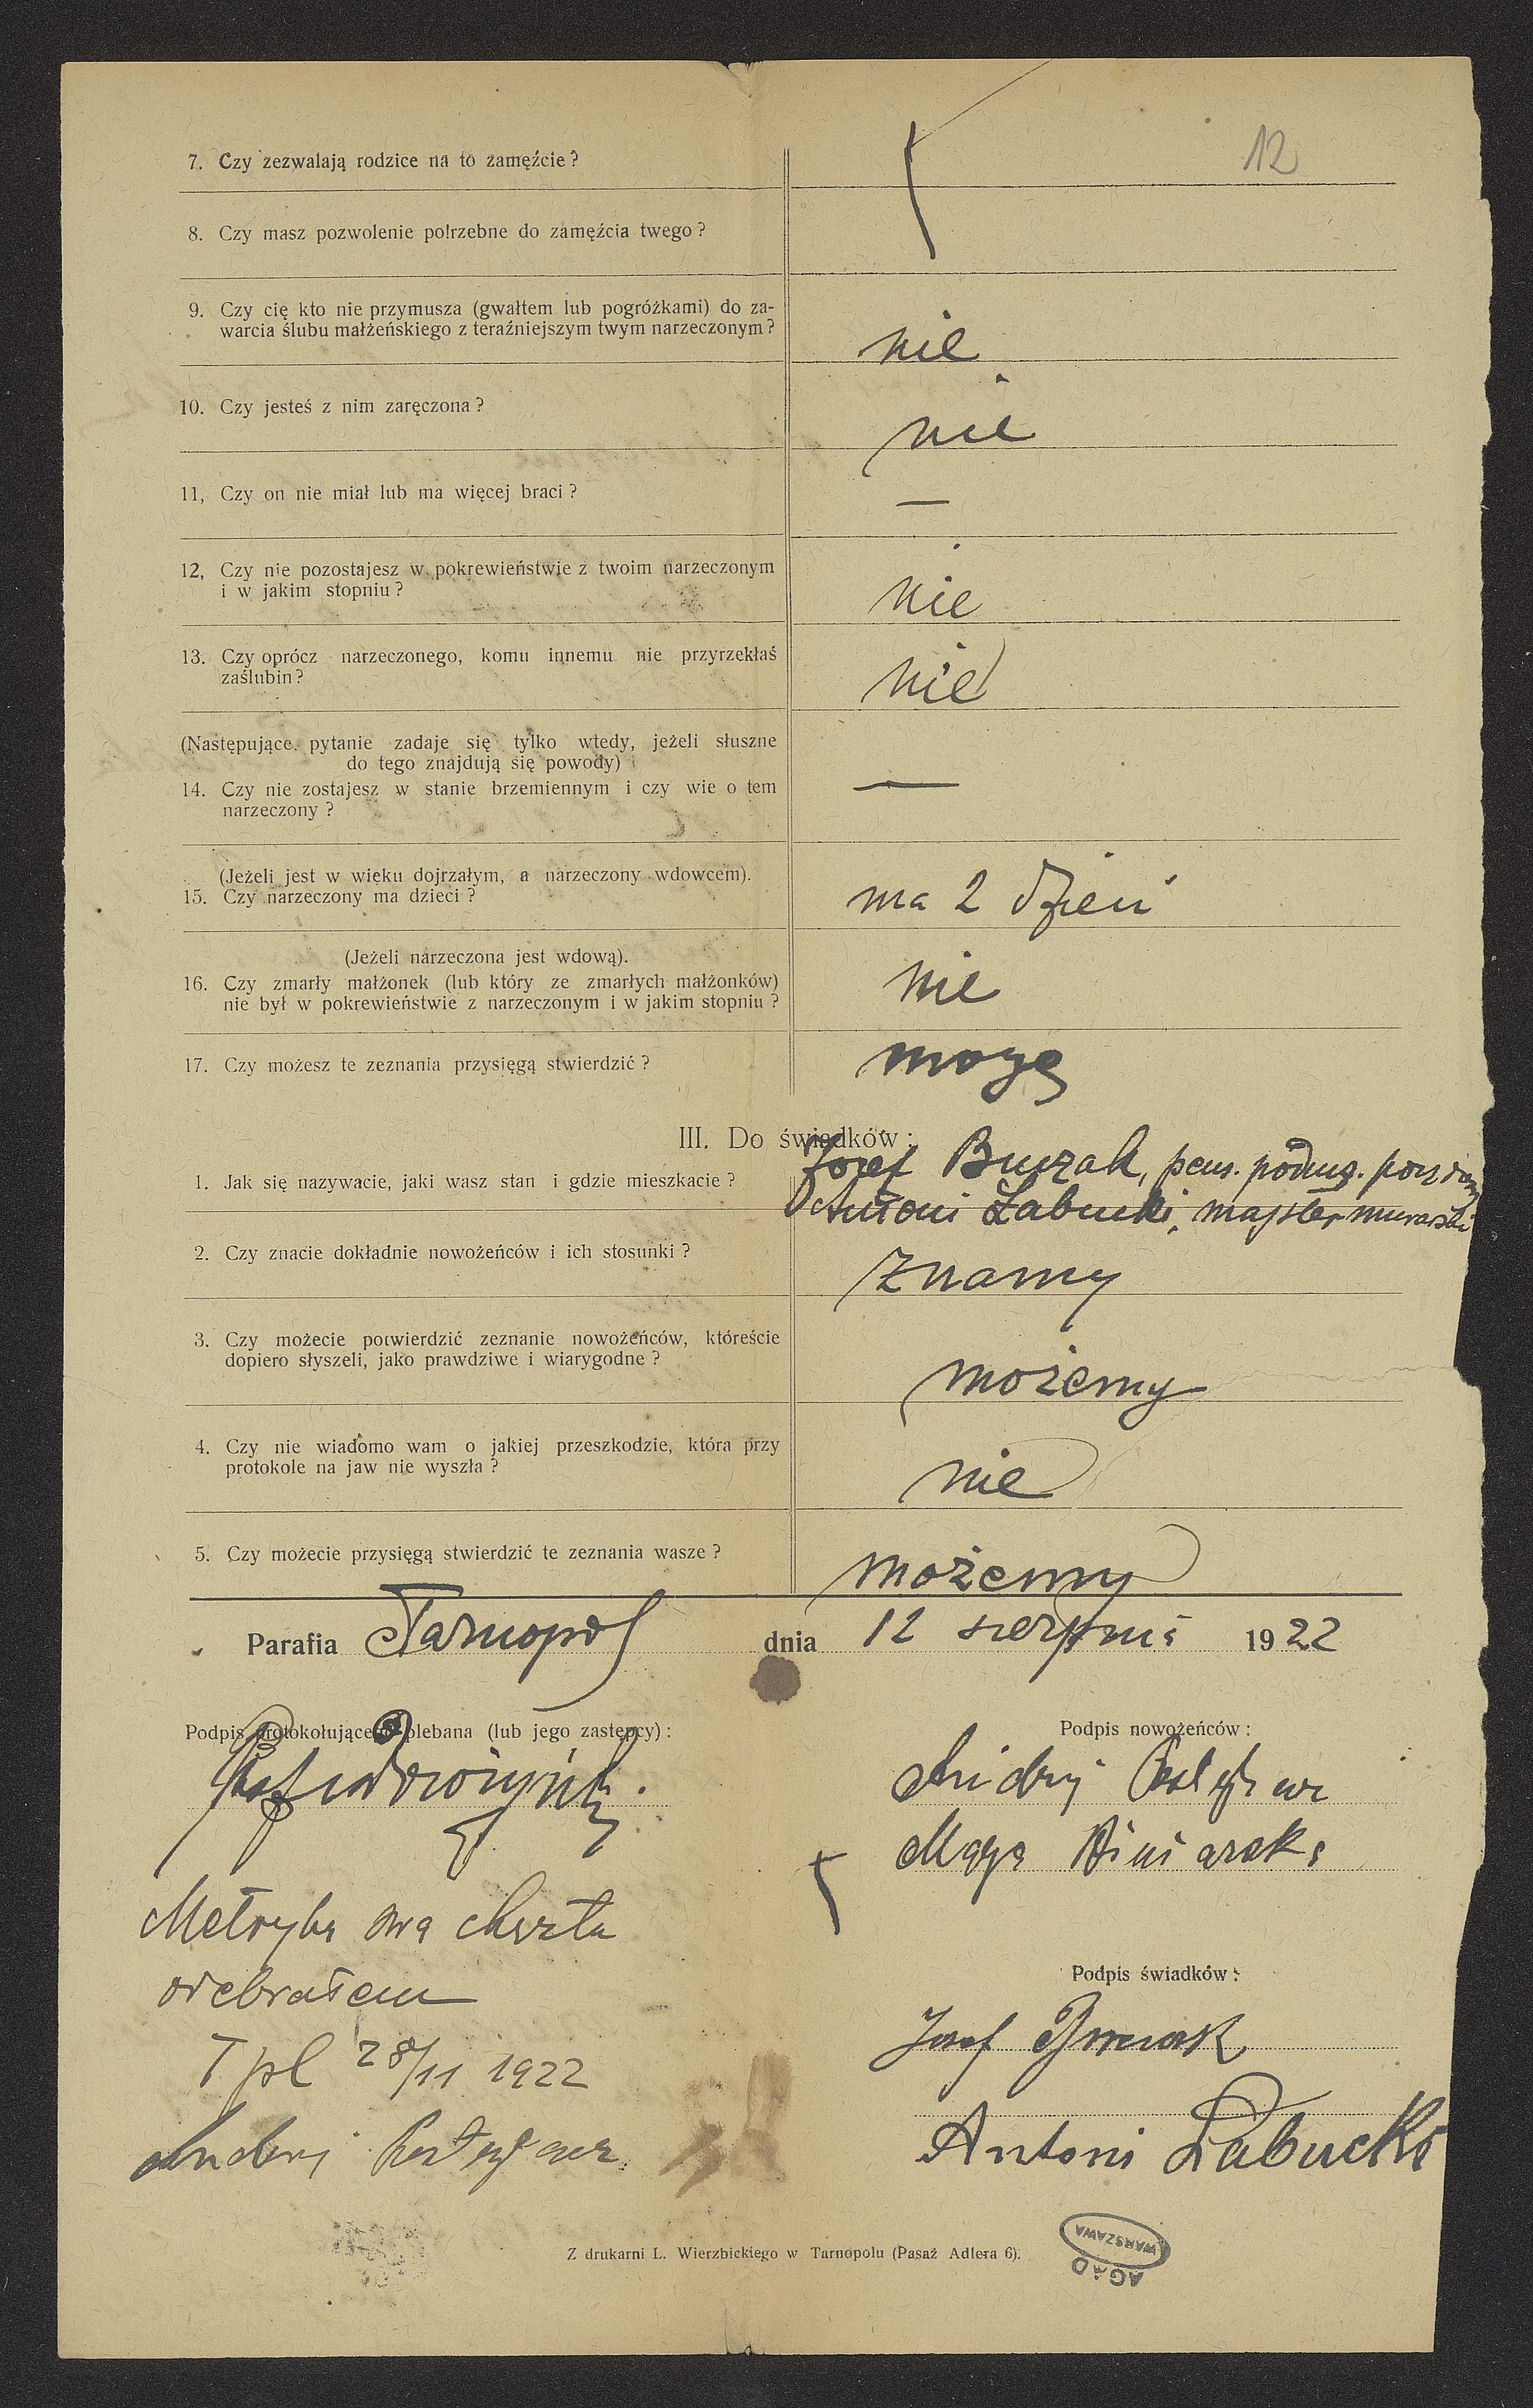 12
7. Czy zezwalają rodzice na to zamęźcie ?
8. Czy masz pozwolenie potrzebne do zamęźcia twego ?
9. Czy cię kto nie przymusza (gwałtem lub pogróżkami) do za-
warcia ślubu małżeńskiego z teraźniejszym twym narzeczonym ?
nie
10. Czy jesteś z nim zaręczona ?
nie
11, Czy on nie miał lub ma więcej braci ?
—
12, Czy nie pozostajesz w pokrewieństwie z twoim narzeczonym
i w jakim stopniu ?
nie
13. Czy oprócz narzeczonego, komu innemu nie przyrzekłaś
zaślubin ?
nie
(Następujące pytanie zadaje się tylko wtedy, jeżeli słuszne
do tego znajdują się powody)
14. Czy nie zostajesz w stanie brzemiennym i czy wie o tem
narzeczony ?
—
(Jeżeli jest w więku dojrzałym, a narzeczony wdowcem).
15. Czy narzeczony ma dzieci ?
ma 2 dzieci
(Jeżeli narzeczona jest wdową).
16. Czy zmarły małżonek (lub który ze zmarłych małżonków)
nie był w pokrewieństwie z narzeczonym i w jakim stopniu ?
nie
17. Czy możesz te zeznania przysięgą stwierdzić ?
mogę
III. Do świadków :
1. Jak się nazywacie, jaki wasz stan i gdzie mieszkacie ?
Józef Burzak, pens.
Antoni Łabucki, majster murarski
2. Czy znacie dokładnie nowożeńców i ich stosunki ?
znamy
3. Czy możecie potwierdzić zeznanie nowożeńców, któreście
dopiero słyszeli, jako prawdziwe i wiarygodne ?
możemy
4. Czy nie wiadomo wam o jakiej przeszkodzie, która przy
protokole na jaw nie wyszła ?
nie
5. Czy możecie przysięgą stwierdzić te zeznania wasze ?
możemy
Parafia Tarnopol dnia 12 sierpnia 1922
Podpis protokołującego plebana (lub jego zastępcy) :
Podpis nowożeńców :
Andrij
Metrykę chrztu
odebrałem
Tpl 28/11 1922
Andrij
Podpis świadków :
Józef
Antoni Łabucki
Z drukarni L. Wierzbickiego w Tarnopolu (Pasaż Adlera 6).
AGAD
WARSZAWA